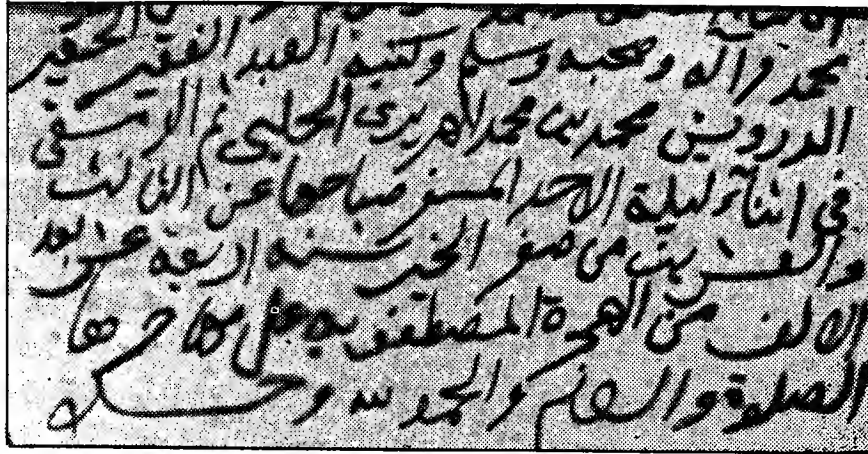 محمد وآله وصحبه وسلم وكتبه العبد الفقير الحقير
الدرويش محمد بن محمد الحلبي ثم الدمشقي
في اثنآء ليلة الاحد المسفر صباحها عن الثالث
والعشرين من صفر الخير سنة اربعة عشر بعد
الالف من الهجرة المصطفوية على مهاجرها
الصلوة والسلام والحمد لله وحده